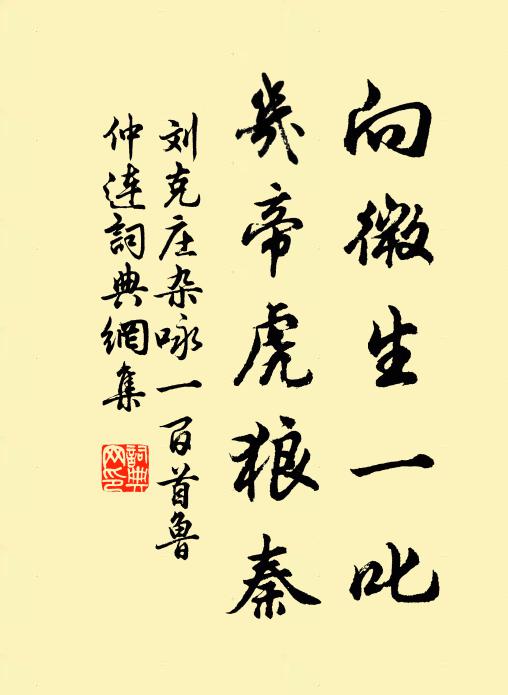 向微生一叱
幾帝虎狼秦
刘克庄杂咏一百首魯
仲連詞典網集
詞典
网印